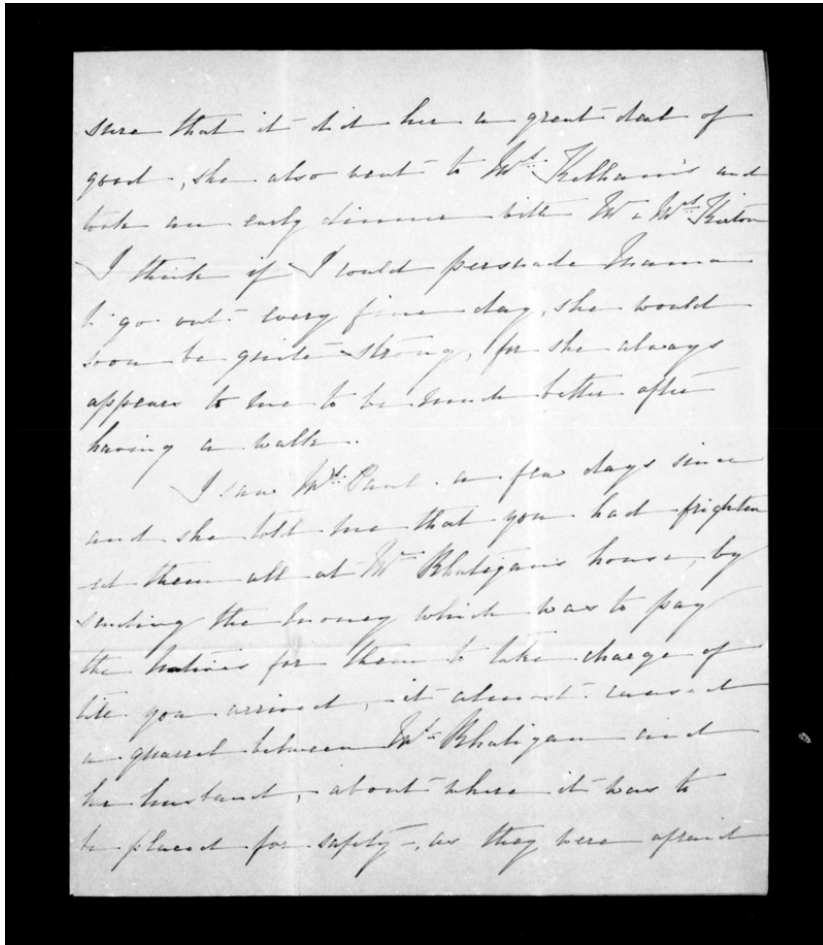 sure that it did her a great deal of
good, she also went to Mrs. Kelham's and
took an early dinner with Mr & Mrs Kirton
I think if I could persuade Mama
to go out every fine day, she would
soon be quite strong, for she always
appears to me to be much better after
having a walk.
I saw Mrs. a few days since
and she told me that you had frighten
-ed them all at Mr Rhatigan's house, by
sending the money which was to pay
the natives for them to take charge of
till you arrived, it almost caused
a quarrel between Mrs Rhatigan and
her husband, about where it was to
be placed for safety, as they were afraid